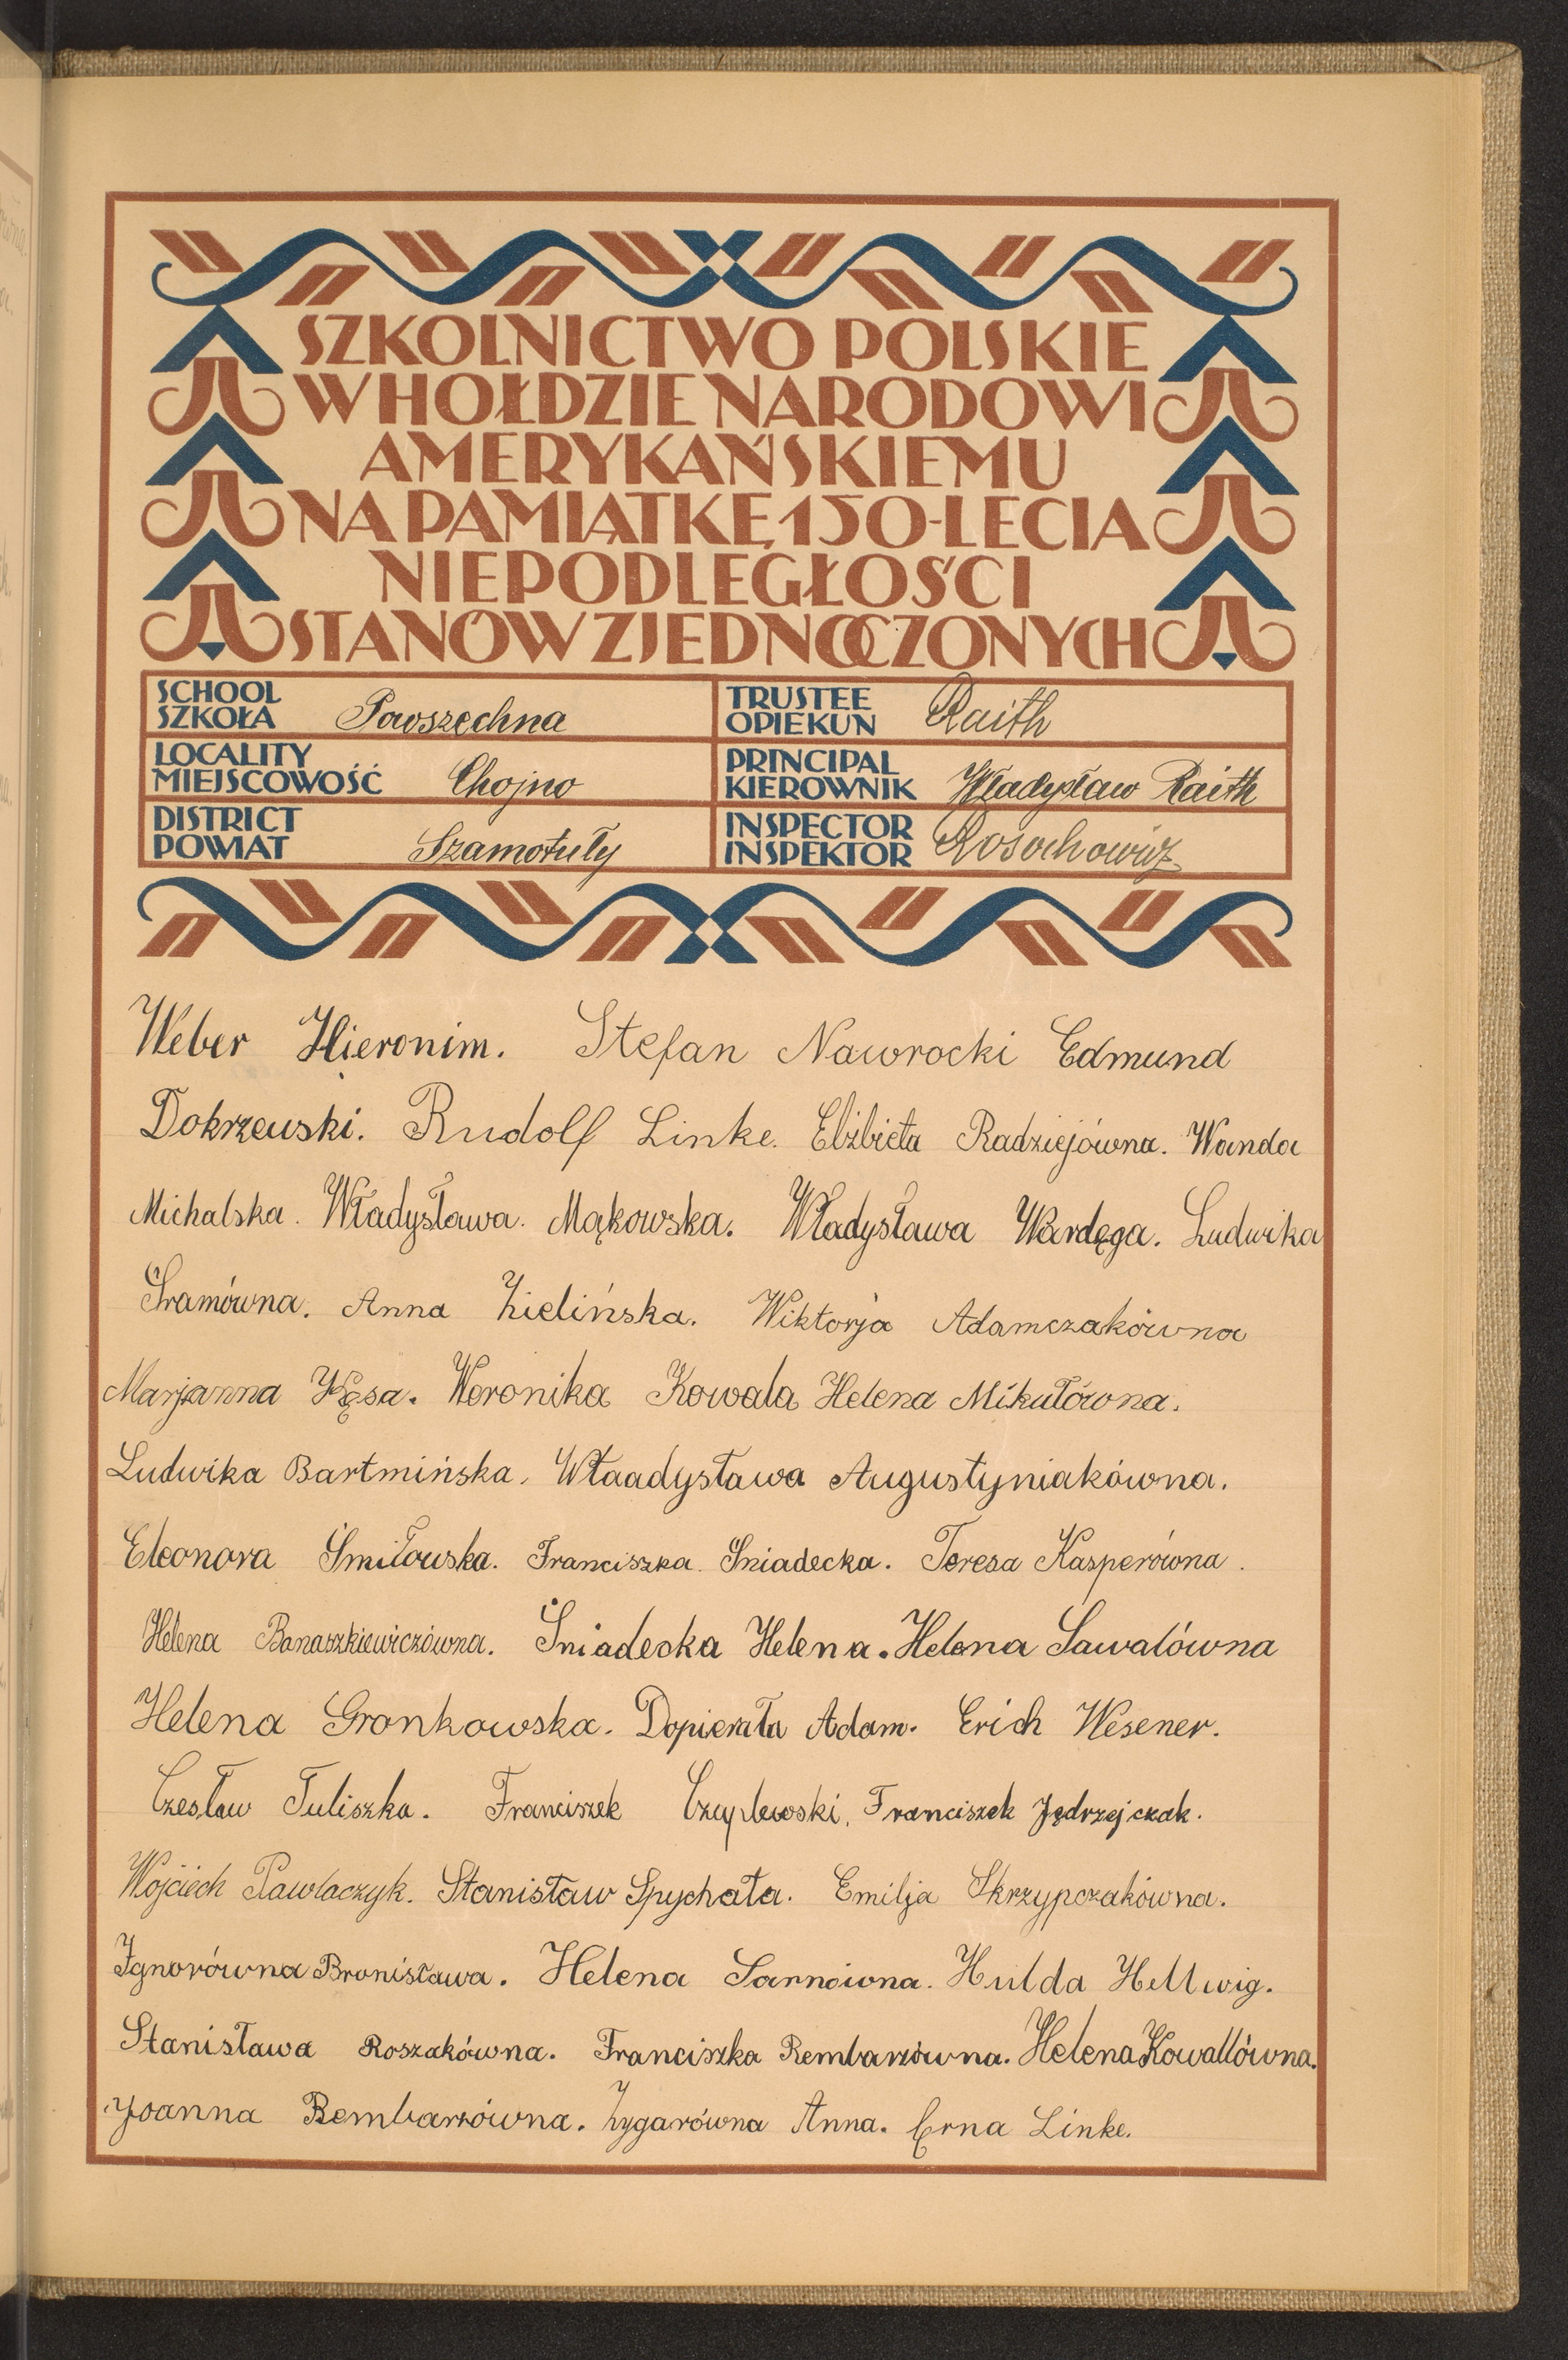 SZKOLNICTWO POLSKIE
W HOŁDZIE NARODOWI
AMERYKAŃSKIEMU
NA PAMIĄTKĘ 150-LECIA
NIEPODLEGŁOŚCI
STANÓW ZJEDNOCZONYCH
SCHOOL
SZKOŁA Powszechna
TRUSTEE
OPIEKUN Raith
LOCALITY
MIEJSCOWOŚĆ Chojno
PRINCIPAL
KIEROWNIK Władysław Raith
DISTRICT
POWIAT Szamotuły
INSPECTOR
INSPEKTOR Rosochowicz
Weber Hieronim. Stefan Nawrocki Edmund
Dokrzewski. Rudolf Linke. Elżbieta Radziejówna. Wanda
Michalska. Władysława. Mąkowska. Władysława Wardęga. Ludwika
Śramówna. Anna Zielińska. Wiktorja Adamczakówna
Marjanna Kęsa. Weronika Kowala Helena Mikułówna.
Ludwika Bartmińska. Właadysława Augustyniakówna.
Eleonora Śmiłowska. Franciszka Śniadecka. Teresa Kasperówna.
Helena Banaszkiewiczówna. Śniadecka Helena. Helena Sawalówna
Helena Gronkowska. Dopierała Adam. Erich Wesener.
Czesław Tuliszka. Franciszek Czyplewski. Franciszek Jędrzejczak.
Wojciech Pawlaczyk. Stanisław Spychała. Emilja Skrzypczakówna.
Ignorówna Bronisława. Helena Sarnówna. Hulda Hellwig.
Stanisława Roszakówna. Franciszka Rembarzówna. Helena Kowallówna.
Joanna Rembarzówna. Zygarówna Anna. Erna Linke.